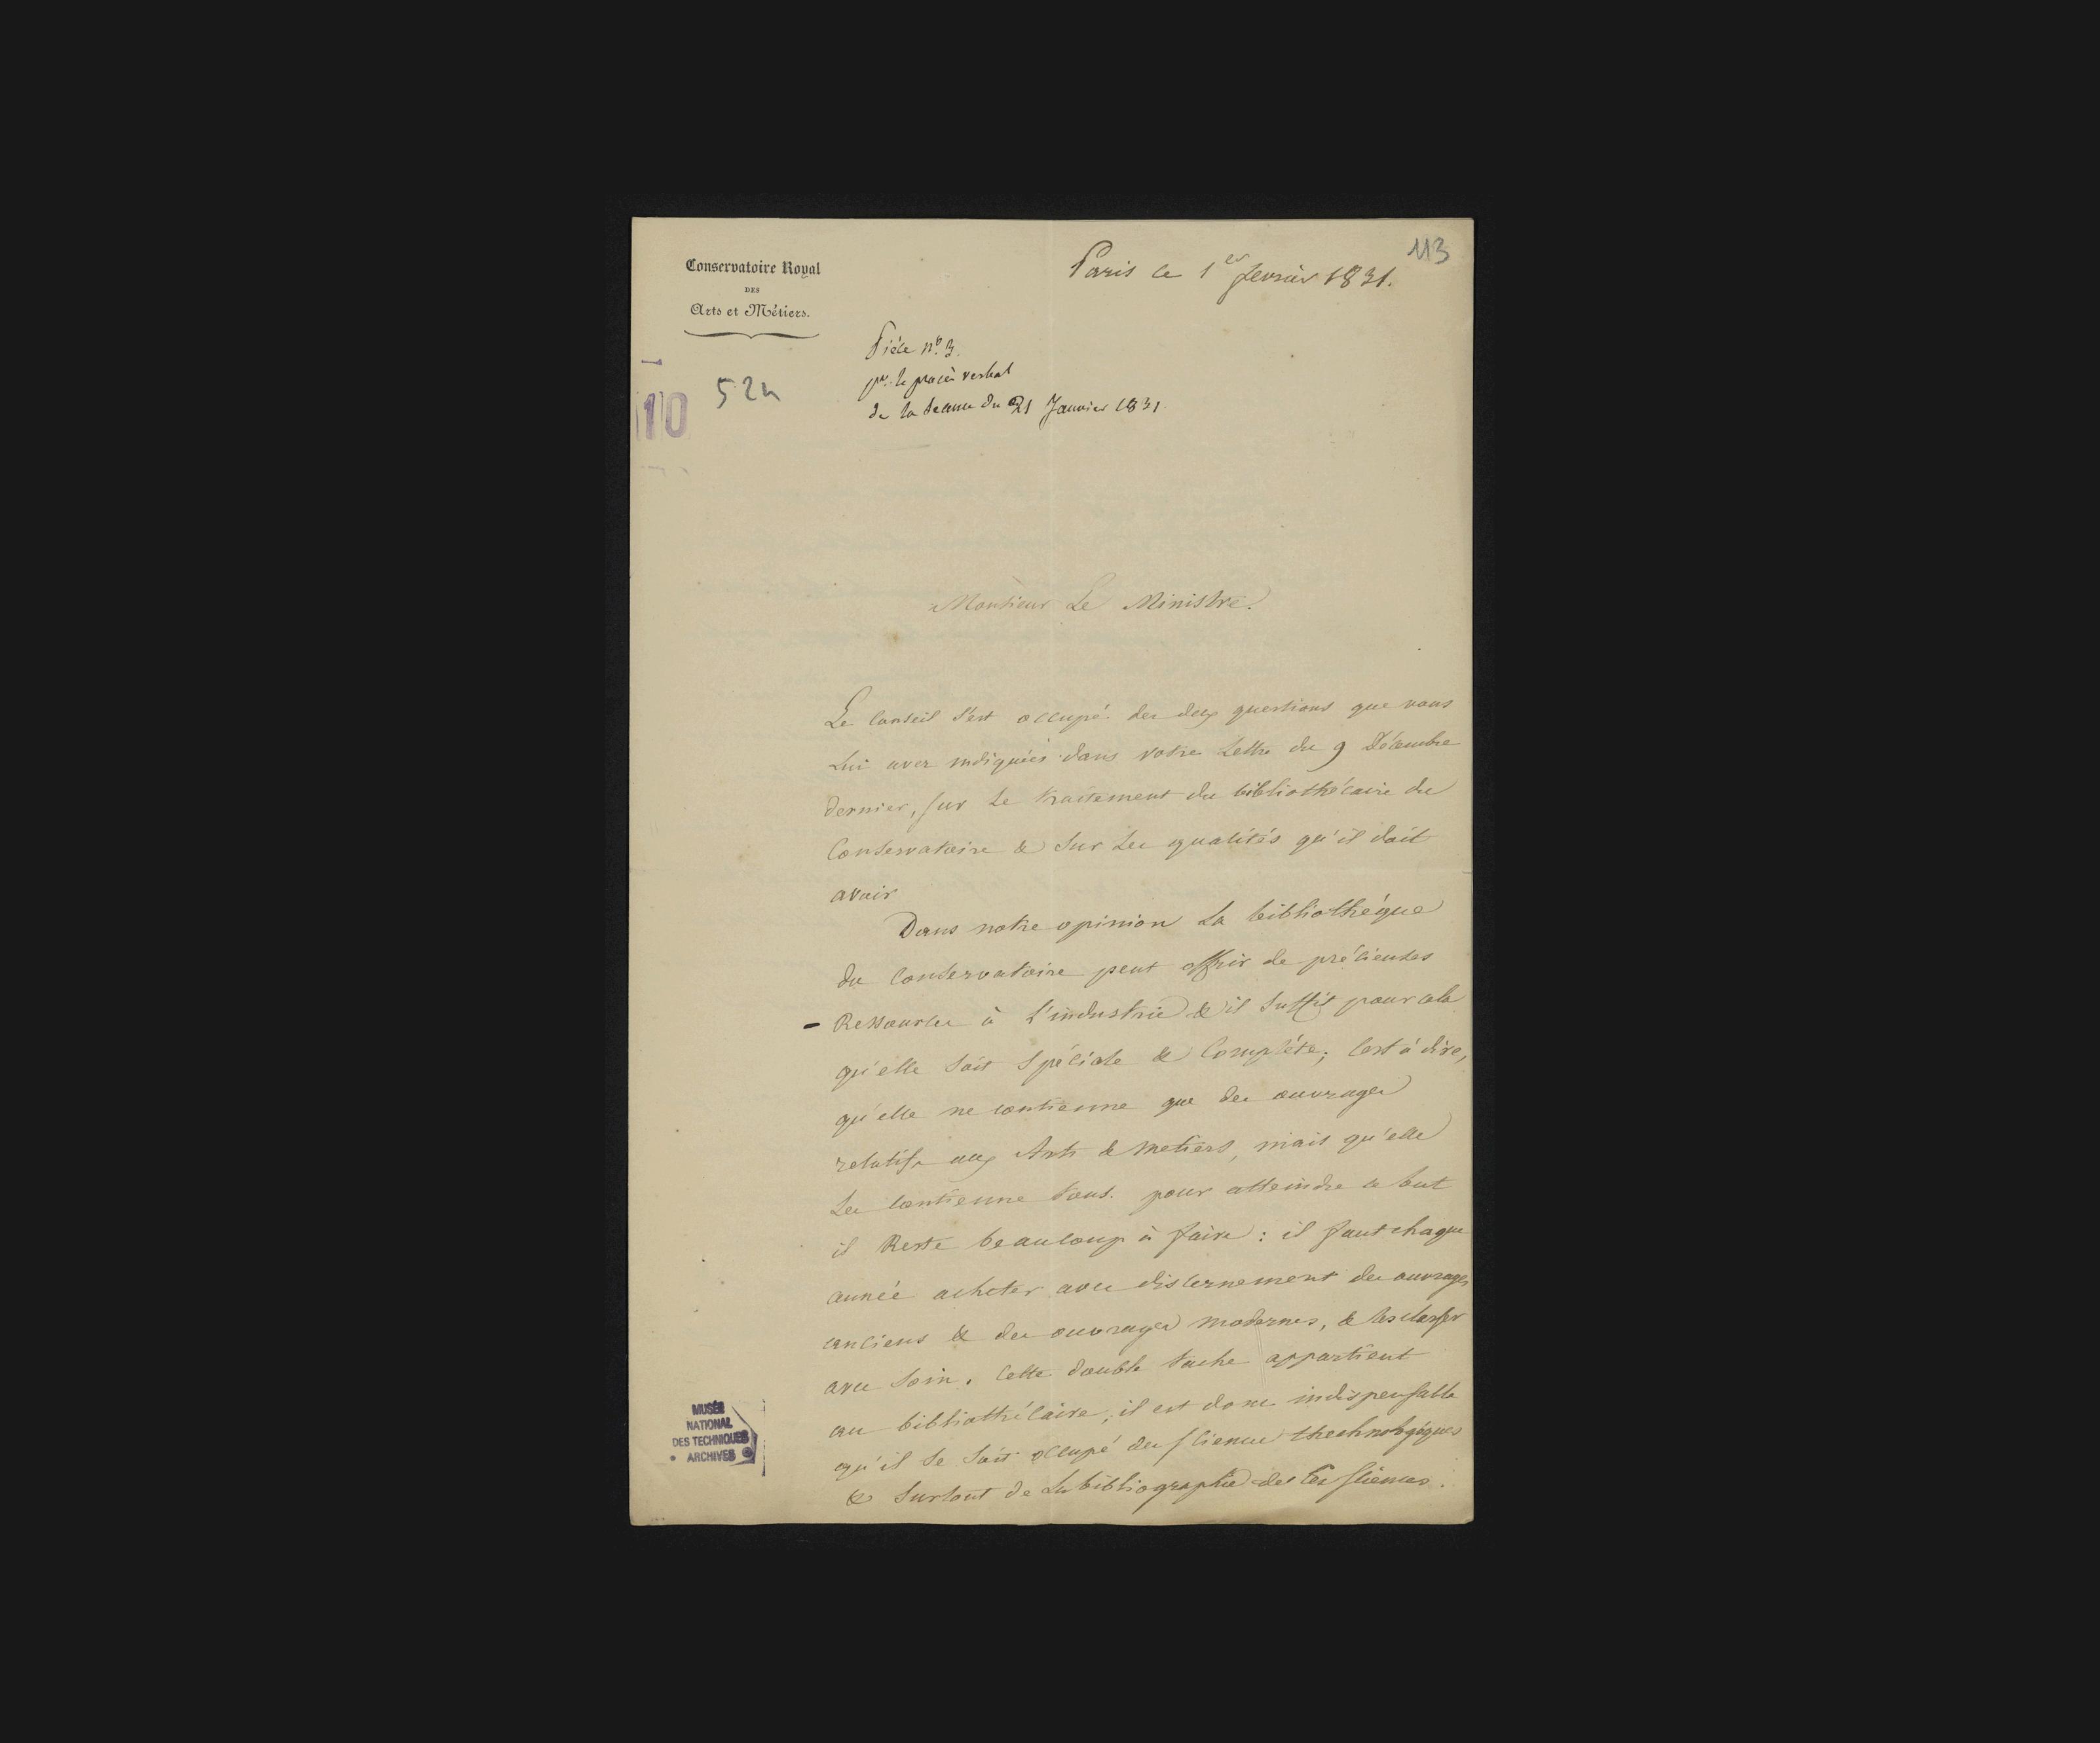 Conservatoire Royal
DES
Arts et Métiers.
113
Paris le 1er fevrier 1831.
Piéce no. 3.
pr. le procès verbal
de la seance du 31 Janvier 1831.
10
524
Monsieur Le Ministre.
Le Conseil s'est occupé des deux questions que vous
Lui avez indiquées dans votre Lettre du 9 Décembre
dernier, sur Le traitement du bibliothécaire du
Conservatoire & sur Les qualités qu'il doit
avoir
Dans notre opinion La bibliothéque
du Conservatoire peut offrir de précieuses
Ressources à L'industrie & il suffit pour cela
qu'elle soit spéciale & Complète; C'est à dire,
qu'elle ne contienne que des ouvrages
relatifs aux Arts & metiers, mais qu'elle
Les Contienne tous. pour atteindre ce but
il Reste beaucoup à faire : il faut chaque
année acheter avec discernement des ouvrages
anciens & des ouvrages modernes, & les classer
avec soin. Cette double tache appartient
au bibliothécaire, il est donc indispensable
qu'il se soit occupé des sciences thechnologiques
& surtout de La bibliographie de Ces sciences.
MUSÉE
NATIONAL
DES TECHNIQUES
ARCHIVES